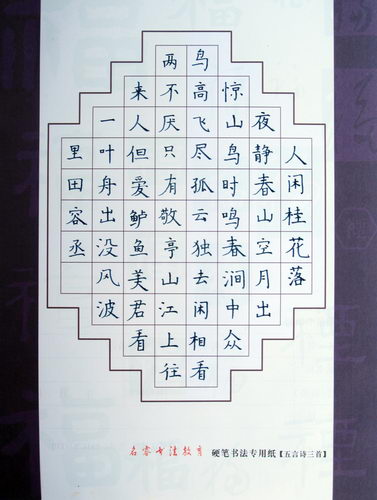 人闲桂花落
夜静春山空月出
惊山鸟时鸣春涧中众
鸟高飞尽孤云独去闲相看
两不厌只有敬亭山江上往
来人但爱鲈鱼美君看
一叶舟出没风波
里田容丞
名睿书法教育 硬笔书法专用纸【五言诗三首】